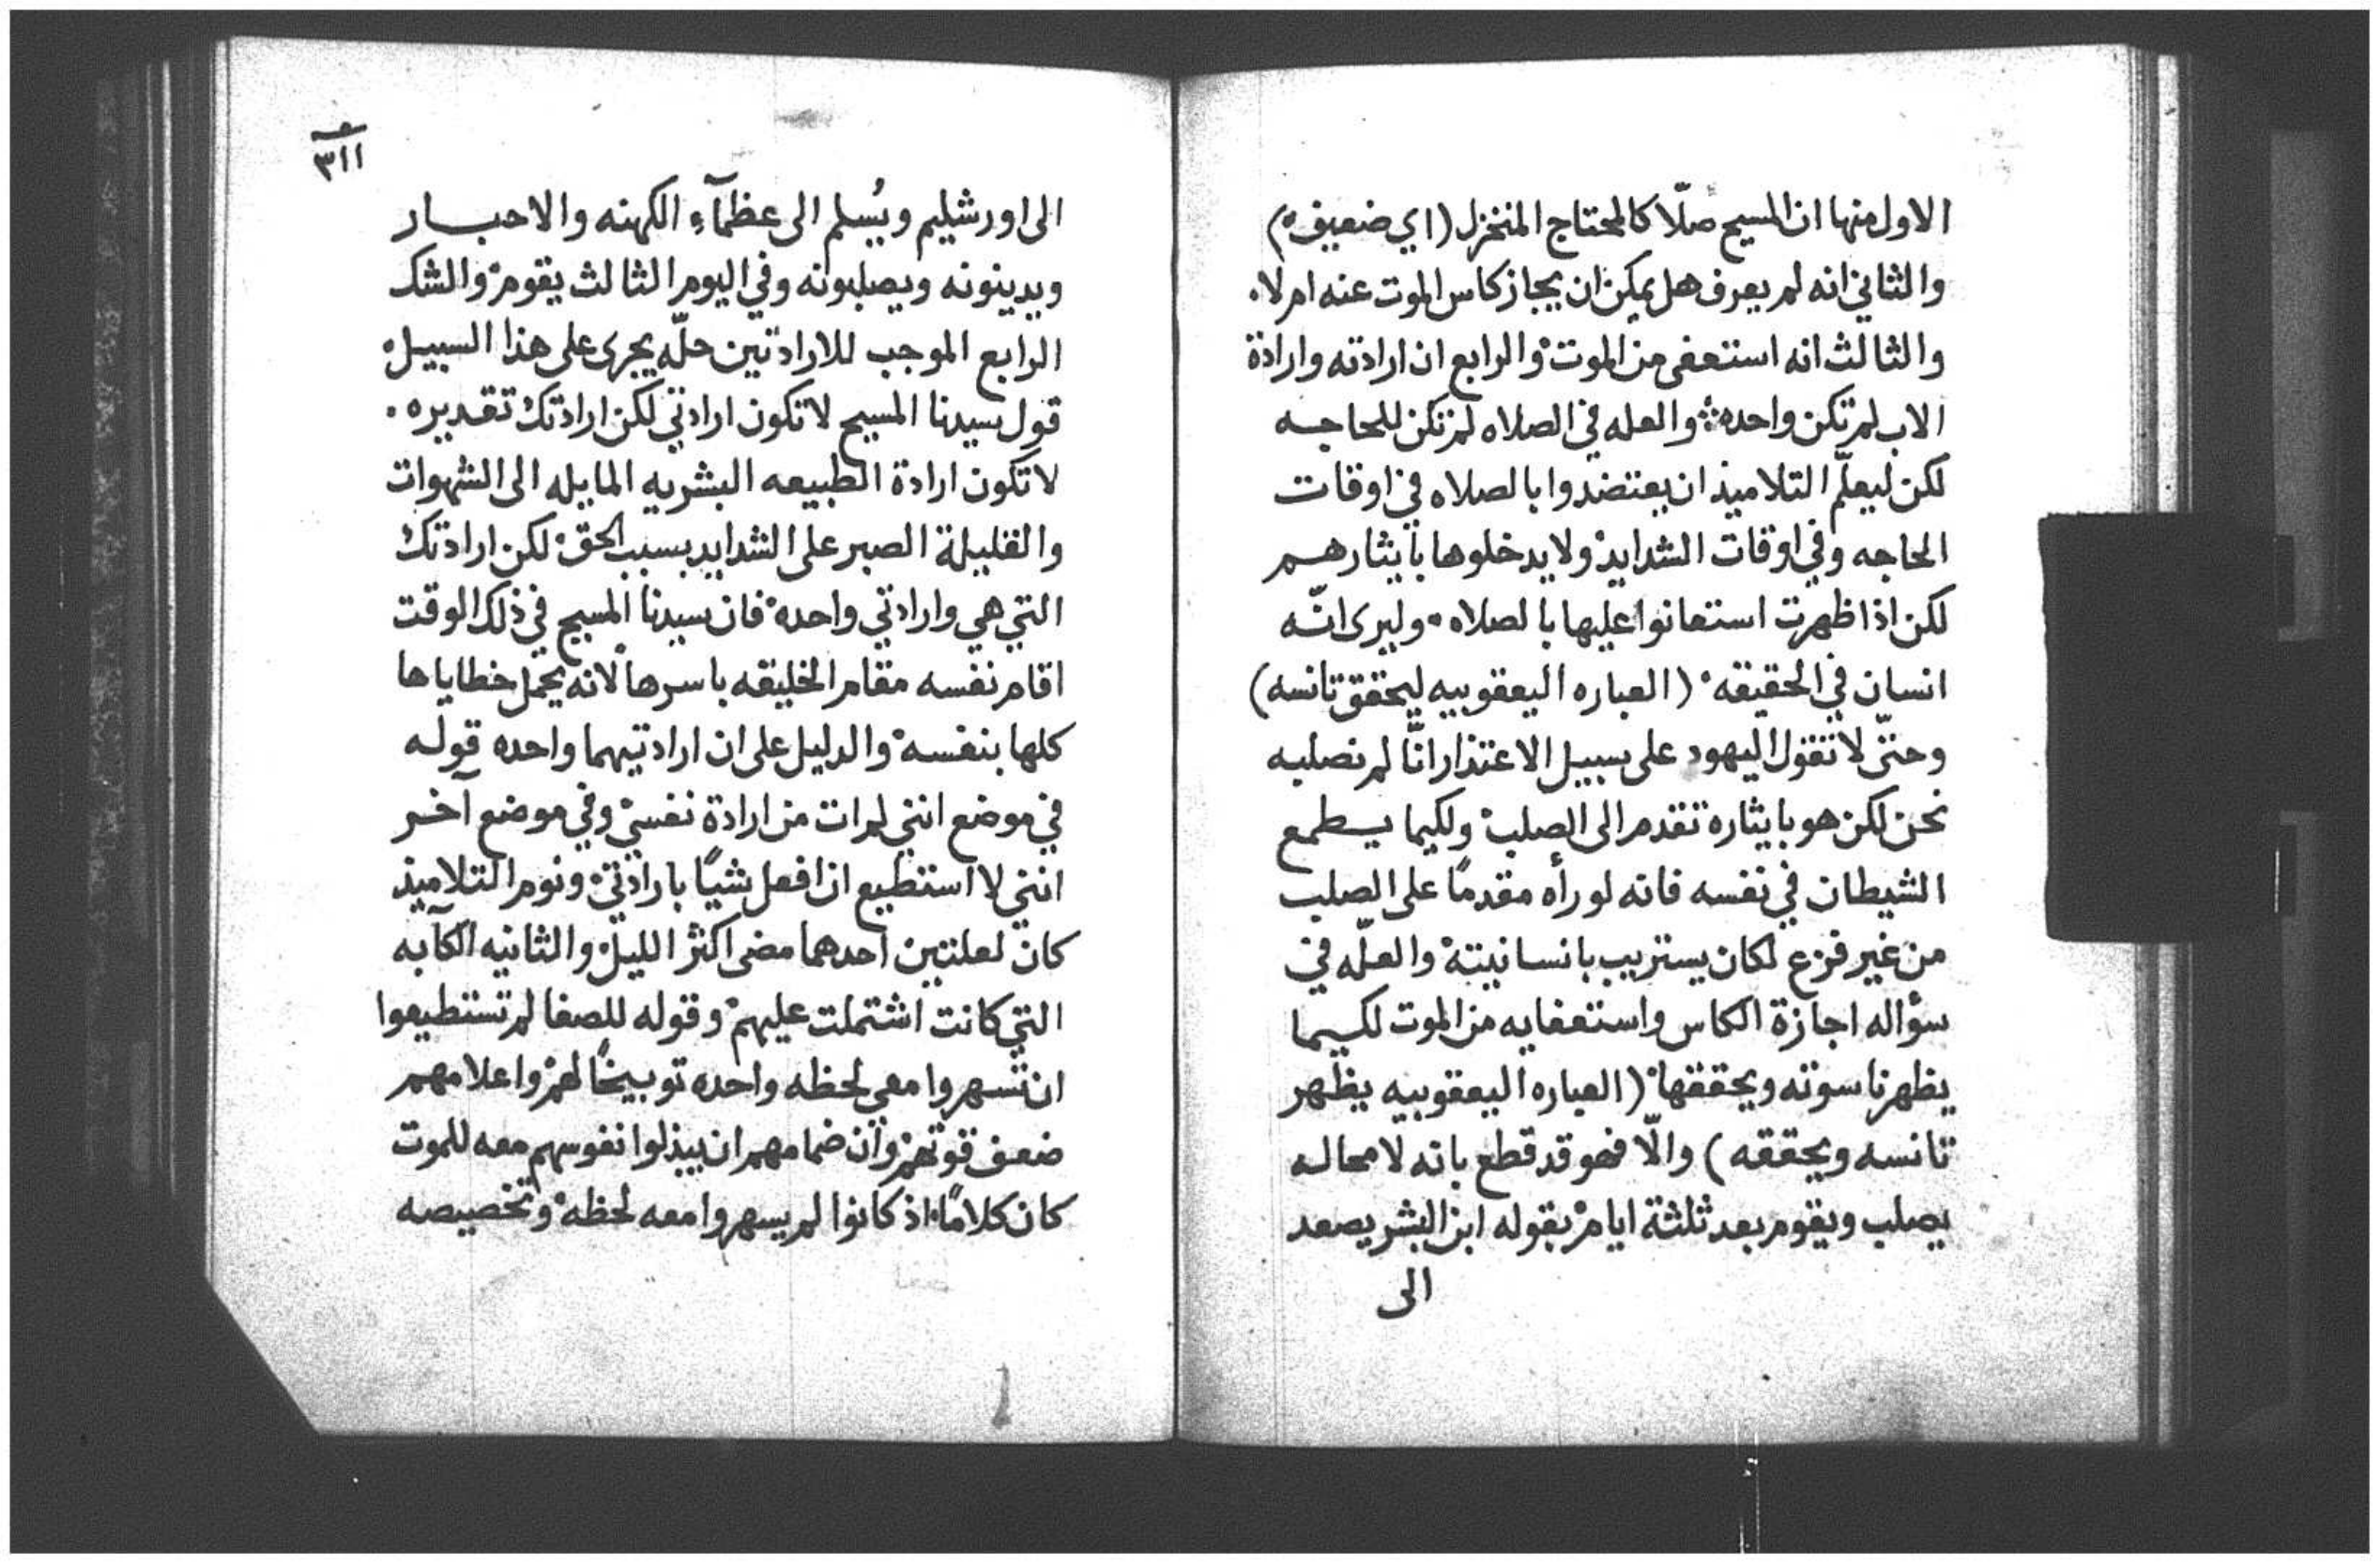 الاول منها ان المسيح صلّا كالمحتاج المنخزل (اي ضعيف)
والثاني انه لم يعرف هل يمكن ان يجاز كاس الموت عنه ام لا.
والثالث انه استعفى من الموت والرابع ان ارادته وارادة
الاب لم تكن واحده والعله في الصلاه لم تكن للحاجه
لكن ليعلّم التلاميذ ان يعتضدوا بالصلاه في اوقات
الحاجه وفي اوقات الشدايد ولا يدخلوها بايثارهم
لكن اذا ظهرت استعانوا عليها بالصلاه. وليرى انّه
انسان في الحقيقه (العباره اليعقوبيه ليحقق تانسه)
وحتّى لا تقول اليهود على سبيل الاعتذار انّا لم نصلبه
نحن لكن هو بايثاره تقدم الى الصلب ولكيما يسطمع
الشيطان في نفسه فانه لو رأه مقدمًا على الصلب
من غير فزع لكان يستريب بانسانيته والعلّه في
سؤاله اجازة الكاس واستعفايه من الموت لكيما
يظهر ناسوته ويحققها (العباره اليعقوبيه يظهر
تانسه ويحققه) والّا فهو قد قطع بانه لا محاله
يصلب ويقوم بعد ثلثة ايام بقوله ابن البشر يصعد
الى
٣١١
الى اورشليم ويُسلم الى عظمآء الكهنه والاحبار
ويدينونه ويصلبونه وفي اليوم الثالث يقوم والشك
الرابع الموجب للارادتين حلّه يجرى على هذا السبيل
قول سيدنا المسيح لا تكون ارادتي لكن ارادتك تقديره.
لا تكون ارادة الطبيعه البشريه المايله الى الشهوات
والقليلة الصبر على الشدايد بسبب الحق لكن ارادتك
التي هي وارادتي واحده فان سيدنا المسيح في ذلك الوقت
اقام نفسه مقام الخليقه باسرها لانه يحمل خطاياها
كلها بنفسه والدليل على ان ارادتيهما واحده قوله
في موضع انني لم ات من ارادة نفسي وفي موضع آخر
انني لا استطيع ان افعل شيًا بارادتي ونوم التلاميذ
كان لعلتين احدهما مضى اكثر الليل والثانيه الكآبه
التي كانت اشتملت عليهم وقوله للصفا لم تستطيعوا
ان تسهروا معي لحظه واحده توبيخًا لهم واعلامهم
ضعف قوتهم وان ضمامهم ان يبذلوا نفوسهم معه للموت
كان كلامًا اذ كانوا لم يسهروا معه لحظه وتخصيصه